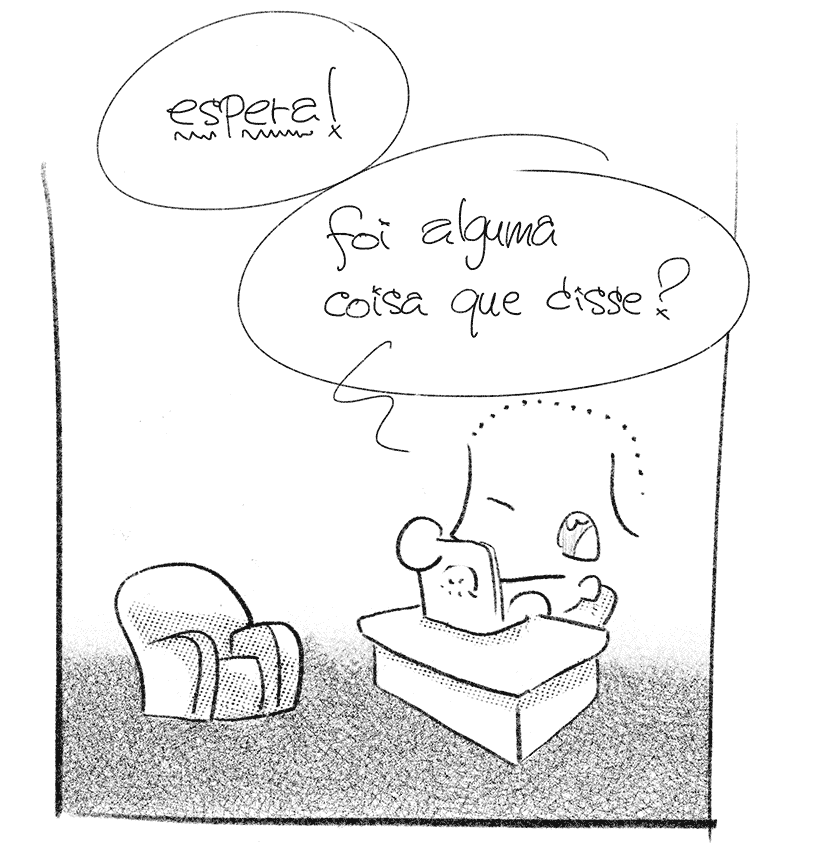 espera!
foi alguma
coisa que disse?